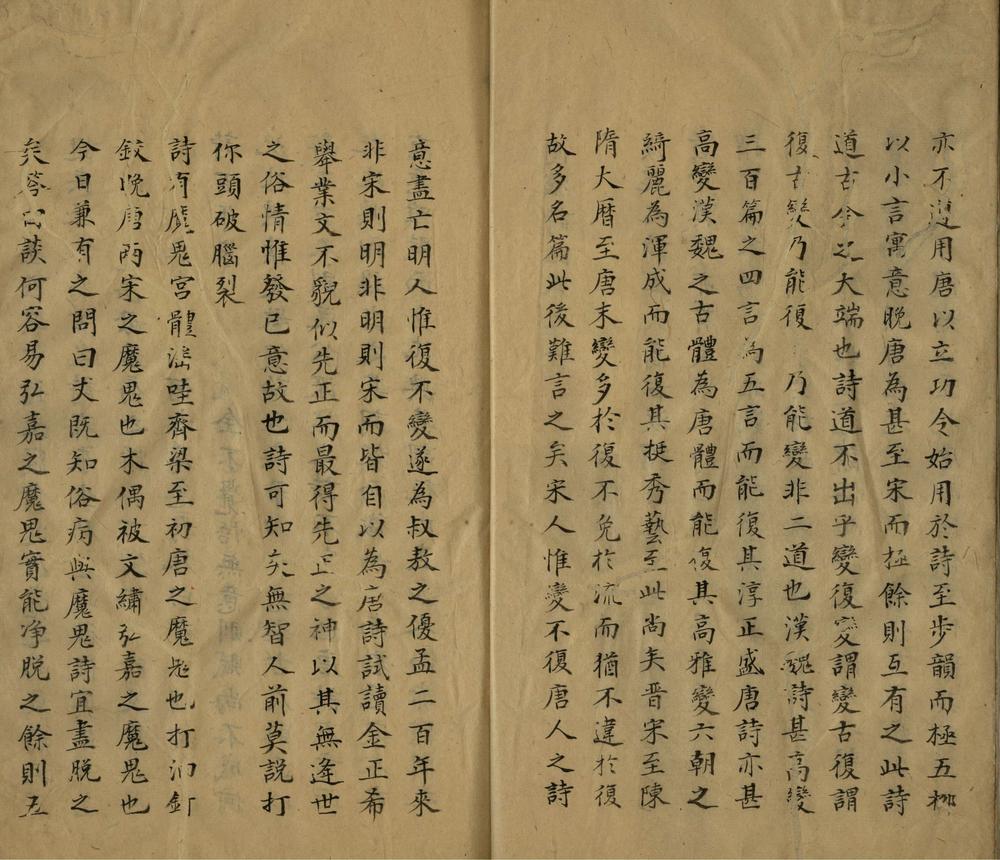 亦不遑用唐以立功令始用於詩至步韻而極五柳
以小言寓意晚唐為甚至宋而極餘則互有之此詩
道古今之大端也詩道不出乎變復變謂變古復謂
復古變乃能復乃能變非二道也漢魏詩甚高變
三百篇之四言為五言而能復其淳正盛唐詩亦甚
高變漢魏之古體為唐體而能復其高雅變六朝之
綺麗為渾成而能復其挺秀藝至此尚矣晉宋至陳
隋大曆至唐末變多於復不免於流而猶不違於復
故多名篇此後難言之矣宋人惟變不復唐人之詩
意盡亡明人惟復不變遂為叔敖之優孟二百年來
非宋則明非明則宋而皆自以為唐詩試讀金正希
舉業文不貌似先正而最得先正之神以其無逢世
之俗情惟發已意故也詩可知矣無智人前莫說打
你頭破腦裂
詩有魔鬼宮體淫哇齊梁至初唐之魔鬼也打油釘
鉸晚唐兩宋之魔鬼也木偶被文繡弘嘉之魔鬼也
今日兼有之問曰丈既知俗病與魔鬼詩宜盡脫之
矣答曰談何容易弘嘉之魔鬼實能净脫之餘則五